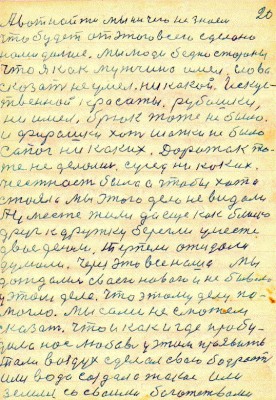 20
А вот найти мы ничего не знаем
что будет от этого всего сделано
нами дальше. Мы люди бедно стороны,
что я как мужчина имел, слова
сказать не умел. никакой. искус-
ственной красоты. рубашки,
ни имел, брюк тоже не было.
и фуражки хоть
сапог ни каких. Дорожак то-
же не делали, сумел ни каких.
честность была а чтобы хата
стояла мы этого дела не видали
Но вместе жили да еще как близко
друг к дружку берегли вместе
двое деньги. терпели ожидали
думали. Через это все наше мы
дождали своего нового и не бывало
у этом деле. что этому делу по-
могло. Мы сами не сможем
сказать. что и как и где пробу-
дило нас любовь у этим проявить
там воздух сделал свою бодрость
или вода создала такая или
земля со своими богатствами